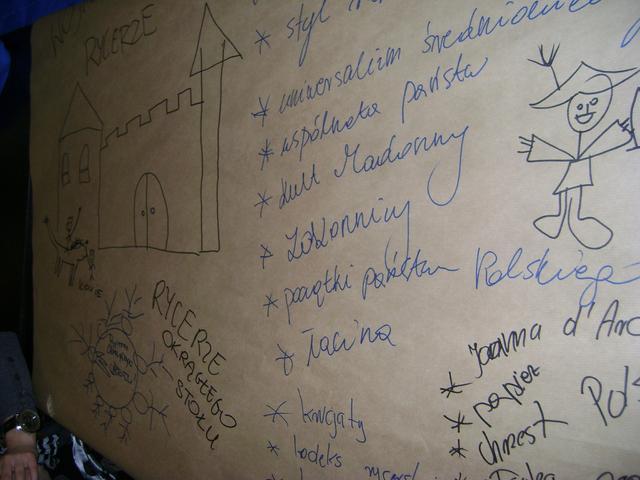 RYCERZE
* styl
* uniwersalizm średniowiecz
* wspólnota państw
* kult Madonny
* zakonnicy
* początki państwa Polskiego
* łacina
KOŃ
RYCERZE
OKRĄGŁEGO
STOŁU
* krucjaty
* kodeks
* Joanna d'Arc
* papież
* chrzest Pols